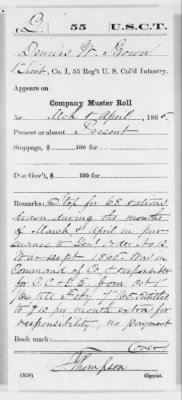 55 U.S.C.T.
Dennis W. Brown
1 Lieut, Co. I, 55 Reg't U. S. Col'd Infantry.
Appears on
Company Muster Roll
for Mch & April, 186
Present or absent Present
Stoppage, $ 100 for
Due Gov't, $ 100 for
Remarks: Stop for 68 rations
drawn during the months
of March & April in pur-
suance to Genl Order No 13
War Dept 1865. Was in
Command of Co. & responsible
for C. C. & G. E. from Oct 1"
/64 till Feby 1"/65 entitled
to $10 per month extra for
responsibility, no payment
Book mark:
(over)
Thompson
(858) Copyist.